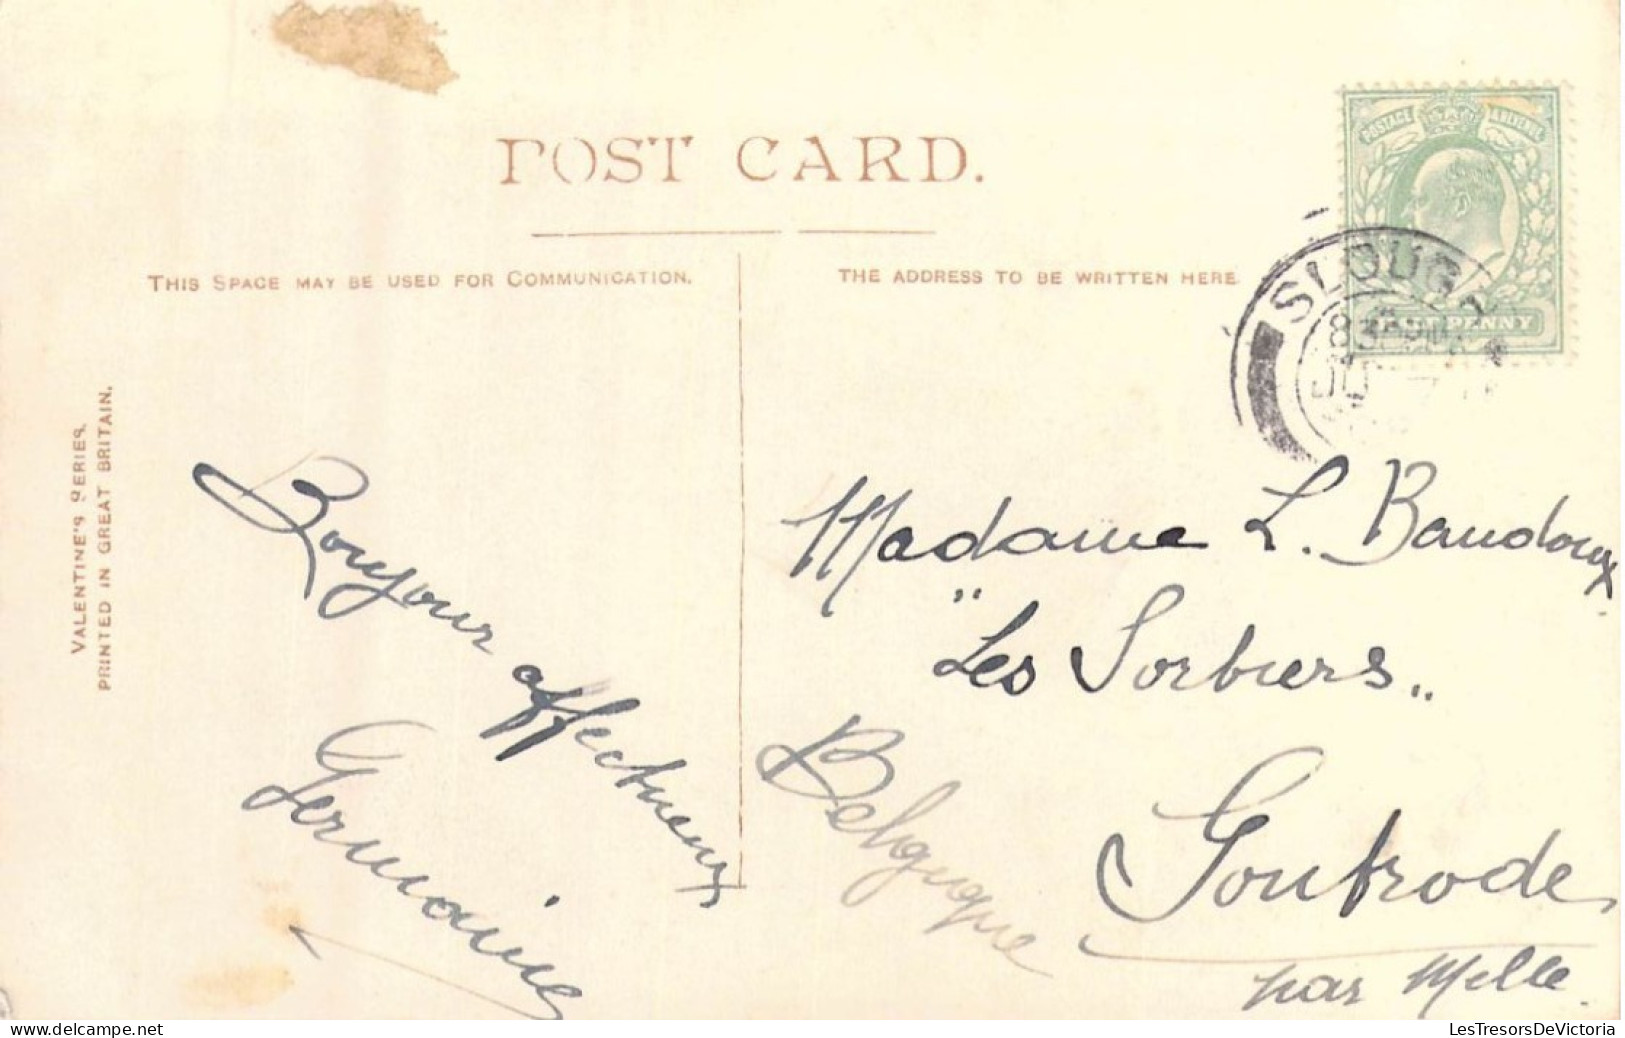 POST CARD.
THIS SPACE MAY BE USED FOR COMMUNICATION.
THE ADDRESS TO BE WRITTEN HERE.
POSTAGE & REVENUE
HALF PENNY
SLOUGH
VALENTINE'S SERIES.
PRINTED IN GREAT BRITAIN.
Bonjour affectueux
Germaine
Madame L. Baudoux
"Les Sorbiers"
Gontrode
par Melle.
Belgique
LesTresorsDeVictoria - delcampe.net